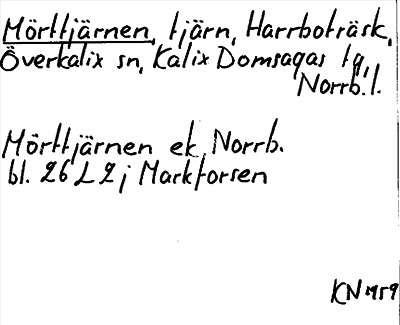 Mörttjärnen, tjärn, Harrboträsk,
Överkalix sn, Kalix Domsagas tg,
Norrb. l.
Mörttjärnen ek Norrb.
bl. 26 L 2 j Markforsen
KN 1959